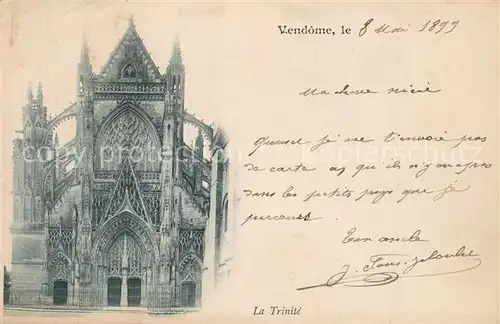 Vendôme, le 8 Mai 1899
Ma chère nièce
Quand je ne t'envoie pas
de carte c'est qu'il n'y en a pas
dans les petits pays que je
parcours.
Ton oncle
J.
La Trinité